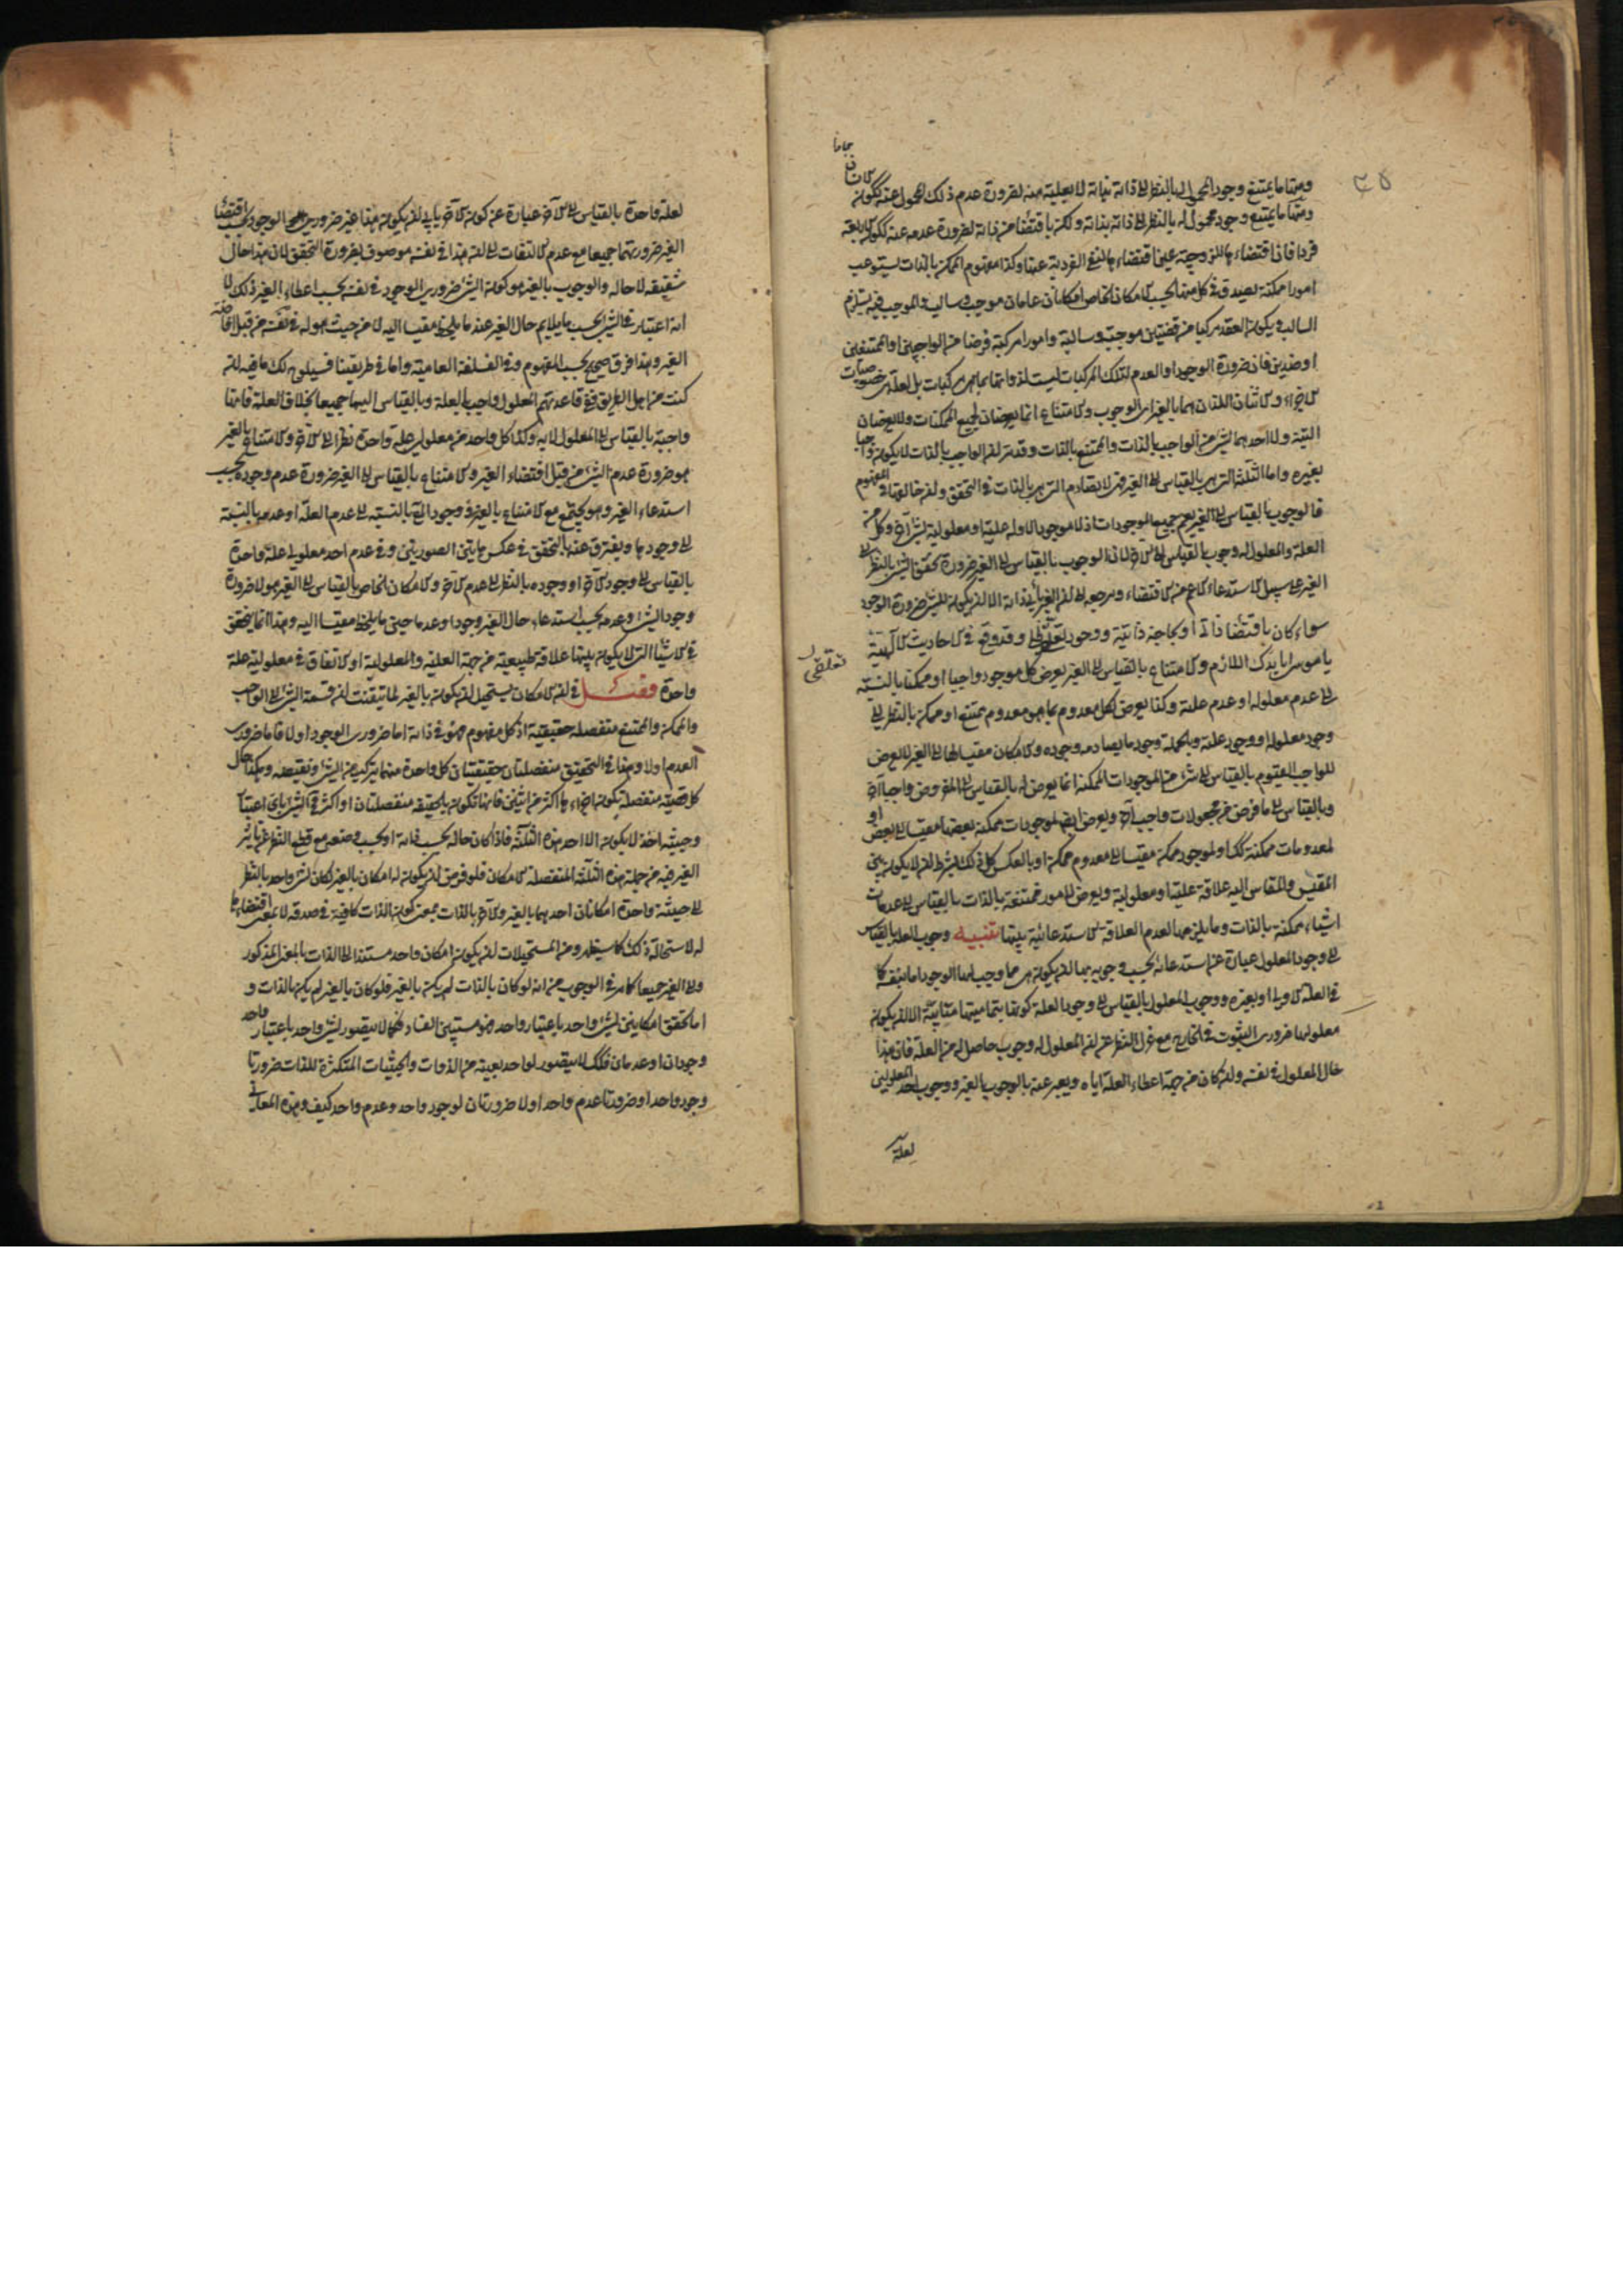 ومنها ما يمتنع وجود المحمول له بالنظر الى ذاته بذاته لا بعلية منه لضرورة عدم ذلك المحمول عنه ككون
ومنها ما يمتنع وجود محمول له بالنظر الى ذاته بذاته ولكن باقتضاء من ذاته لضرورة عدمه عنه ككون الاربعة
فردا فان اقتضاءها للزوجية عين اقتضاءها لنفي الفردية عنها وكذا مفهوم الممكن بالذات يستوعب
امورا ممكنة يصدق في كل منها بحسب الامكان الخاص امكانان عامان موجب وسالب والموجب فيه يستلزم
السالب فيكون العقد مركبا من قضيتين موجبة وسالبة وامورا مركبة فرضا من الواجبين او الممتنعين
او ضدين فان ضرورة الوجود او العدم لتلك المركبات ليست لذواتها بما هي مركبات بل لعلة هي خصوصيات
الاجزاء والاثنان اللذان هما بالغير اي الوجوب والامتناع انما يعرضان لجميع الممكنات ولا يعرضان
البتة ولا احدهما لشئ من الواجب بالذات والممتنع بالذات وقد مر ان الواجب بالذات لا يكون واجبا
بغيره واما الثلثة التي هي بالقياس الى الغير فهي لا تصادم التي هي بالذات في التحقق وان خالفها في المفهوم
فالوجوب بالقياس الى الغير يعم جميع الموجودات اذ لا موجود الا وله علية او معلولية لشئ آخر وكل من
العلة والمعلول له وجوب بالقياس الى الآخر لان الوجوب بالقياس الى الغير ضرورة تحقق الشئ بالنظر الى
الغير على سبيل الاستدعاء الاعم من الاقتضاء ومرجعه الى ان الغير يأبى ذاته الا ان يكون للشئ ضرورة الوجود
سواء كان باقتضاء ذاتي او بحاجة ذاتية ووجود تعلقي وقد وقع في الاحاديث الالهية
تعلقي
يا موسى انا بدك اللازم والامتناع بالقياس الى الغير يعرض لكل موجود واجبا او ممكنا بالنسبة
الى عدم معلوله او عدم علته وكذا يعرض لكل معدوم بما هو معدوم ممتنع او ممكن بالنظر الى
وجود معلوله او وجود علته وبالجملة وجود ما يصادمه وجوده والامكان مقيسا الى الغير لا يعرض
للواجب القيوم بالقياس الى شئ من الموجودات الممكنة انما يعرض له بالقياس الى المفروض واجبا آخر
وبالقياس الى ما فرض من مجعولات واجب آخر ويعرض ايضا لموجودات ممكنة بعضها مقيسا الى بعض او
لمعدومات ممكنة كذلك او لموجود ممكن مقيسا الى معدوم ممكن او بالعكس كل ذلك بشرط ان لا يكون بين
المقيس والمقاس اليه علاقة علية او معلولية ويعرض لامور ممتنعة بالذات بالقياس الى عدمات
اشياء ممكنة بالذات وما يلزمها لعدم العلاقة الاستدعائية بينها تنبيه وجوب العلة بالقياس
الى وجود المعلول عبارة عن استدعائه بحسب وجوبه بها ان يكون هي مما وجب لها الوجود اما بنفسه كما
في العلة الاولى او بغيره ووجوب المعلول بالقياس الى وجود العلة كونها بتماميتها متأبية الا ان يكون
معلولها ضروري الثبوت في الخارج مع عزل النظر عن ان المعلول له وجوب حاصل له من العلة فان هذا
حال المعلول في نفسه وان كان من جهة اعطاء العلة اياه ويعبر عنه بالوجوب بالغير ووجوب احد المعلولين
لعلة
لعلة واحدة بالقياس الى الآخر عبارة عن كون الآخر يأبى ان يكون هذا غير ضروري الوجود بحسب اقتضاء
الغير ضرورتهما جميعا مع عدم الالتفات الى ان هذا في نفسه موصوف بضرورة التحقق لان هذا حال
شقيقه لا حاله والوجوب بالغير هو كون الشئ ضروري الوجود في نفسه بحسب اعطاء الغير ذلك لا
انه اعتبار في الشئ بحسب ما يلايم حال الغير عند ما يلحظ مقيسا اليه لا من حيث هو له في نفسه من قبل افاضة
الغير وهذا فرق صحيح بحسب المفهوم وفي الفلسفة العامية واما في طريقتنا فسيلوح لك ما فيه ان
كنت من اهل الطريق ففي قاعدتهم المعلول واجب بالعلة وبالقياس اليها جميعا بخلاف العلة فانها
واجبة بالقياس الى المعلول لا به وكذا كل واحد من معلولي علة واحدة نظرا الى الآخر والامتناع بالغير
هو ضرورة عدم الشئ من قبل اقتضاء الغير والامتناع بالقياس الى الغير ضرورة عدم وجوده بحسب
استدعاء الغير وهو يجتمع مع الامتناع بالغير في وجود الـ بالنسبة الى عدم العلة او عدمه بالنسبة
الى وجودها ويفترق عنه بالتحقق في عكس هاتين الصورتين وفي عدم احد معلولي علة واحدة
بالقياس الى وجود الآخر او وجوده بالنظر الى عدم الآخر والامكان الخاص بالقياس الى الغير هو لا ضرورة
وجود الشئ وعدمه بحسب استدعاء حال الغير وجودا وعدما حين ما يلحظ مقيسا اليه وهذا انما يتحقق
في الاشياء التي لا يكون بينها علاقة طبيعية من جهة العلية والمعلولية او الاتفاق في معلولية علة
واحدة فصل في ان الامكان يستحيل ان يكون بالغير لما تيقنت ان قسمة الشئ الى الواجب
والممكن والممتنع منفصلة حقيقية اذ كل مفهوم فهو في ذاته اما ضروري الوجود او لا فاما ضروري
العدم او لا وهما في التحقيق منفصلتان حقيقيتان كل واحدة منهما يتركب من الشئ ونقيضه وهكذا حال
كل قضية منفصلة يكون اجزاءها اكثر من اثنين فانها تكون بالحقيقة منفصلتان او اكثر في الشئ باي اعتبار
وحيثية اخذ لا يكون الا احد هذه الثلثة فاذا كان حاله بحسب ذاته او بحسب وضعه مع قطع النظر عن تأثير
الغير فيه من جملة هذه الثلثة المنفصلة الامكان فلو فرض ان يكون له امكان بالغير لكان لشئ واحد بالنظر
الى حيثية واحدة امكانان احدهما بالغير والآخر بالذات بمعنى كون الذات كافية في صدقه لا بمعنى اقتضاءها
له لاستحالة ذلك كما سيظهر ومن المستحيلات ان يكون امكان واحد مستندا الى الذات بالمعنى المذكور
والى الغير جميعا كما مر في الوجوب من انه لو كان بالذات لم يكن بالغير فلو كان بالغير لم يكن بالذات و
اما تحقق امكانين لشئ واحد باعتبار واحد فهو مستبين الفساد فكما لا يتصور لشئ واحد باعتبار واحد
وجودان او عدمان فكذلك لا يتصور لواحد بعينه من الذوات والحيثيات المتكثرة للذات ضرورتا
وجود واحد او ضرورتا عدم واحد او لا ضرورتان لوجود واحد وعدم واحد كيف وهذه المعاني